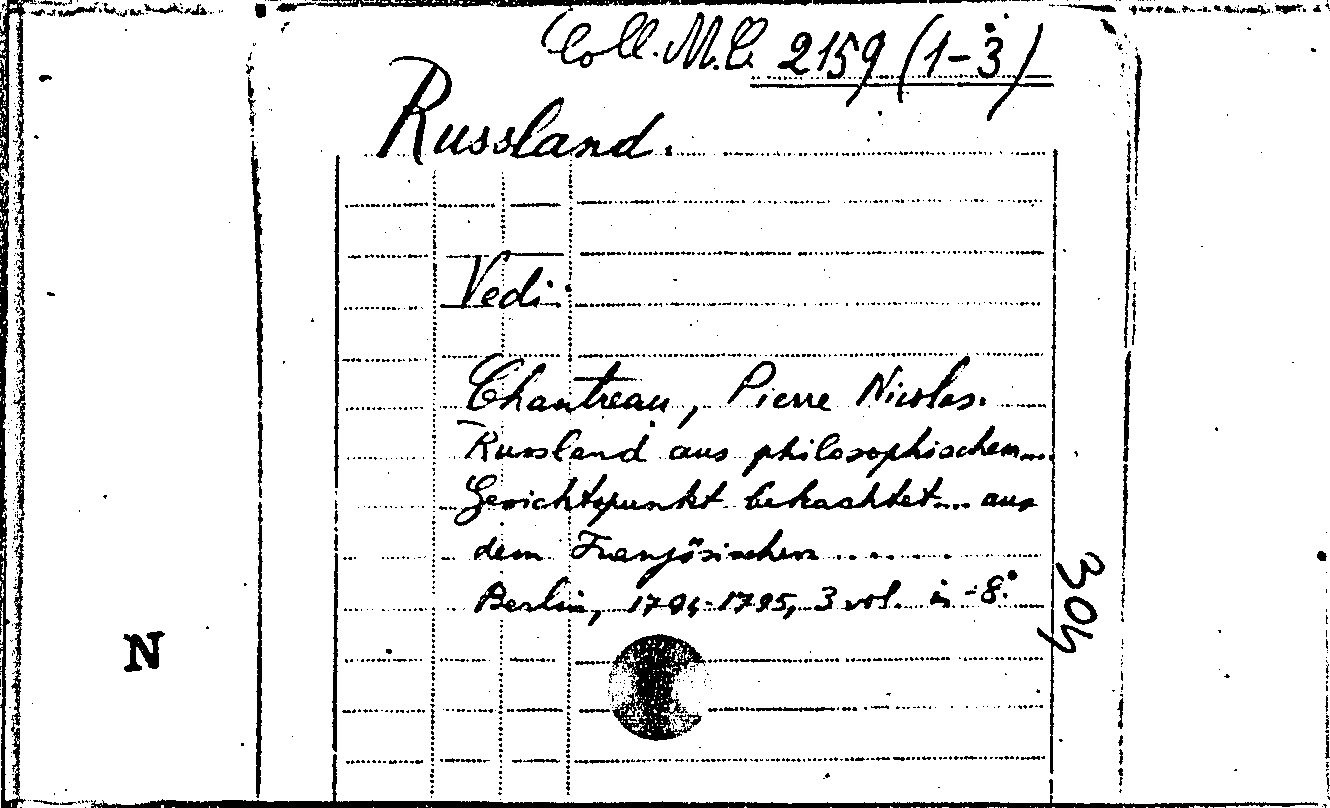 Coll. M.C. 2159 (1-3)
Russland.
Vedi:
Chantreau, Pierre Nicolas.
Russland aus philosophischem
Gesichtspunkt betrachtet... aus
dem Französischen......
Berlin, 1794-1795, 3 vol. in-8°.
304
N